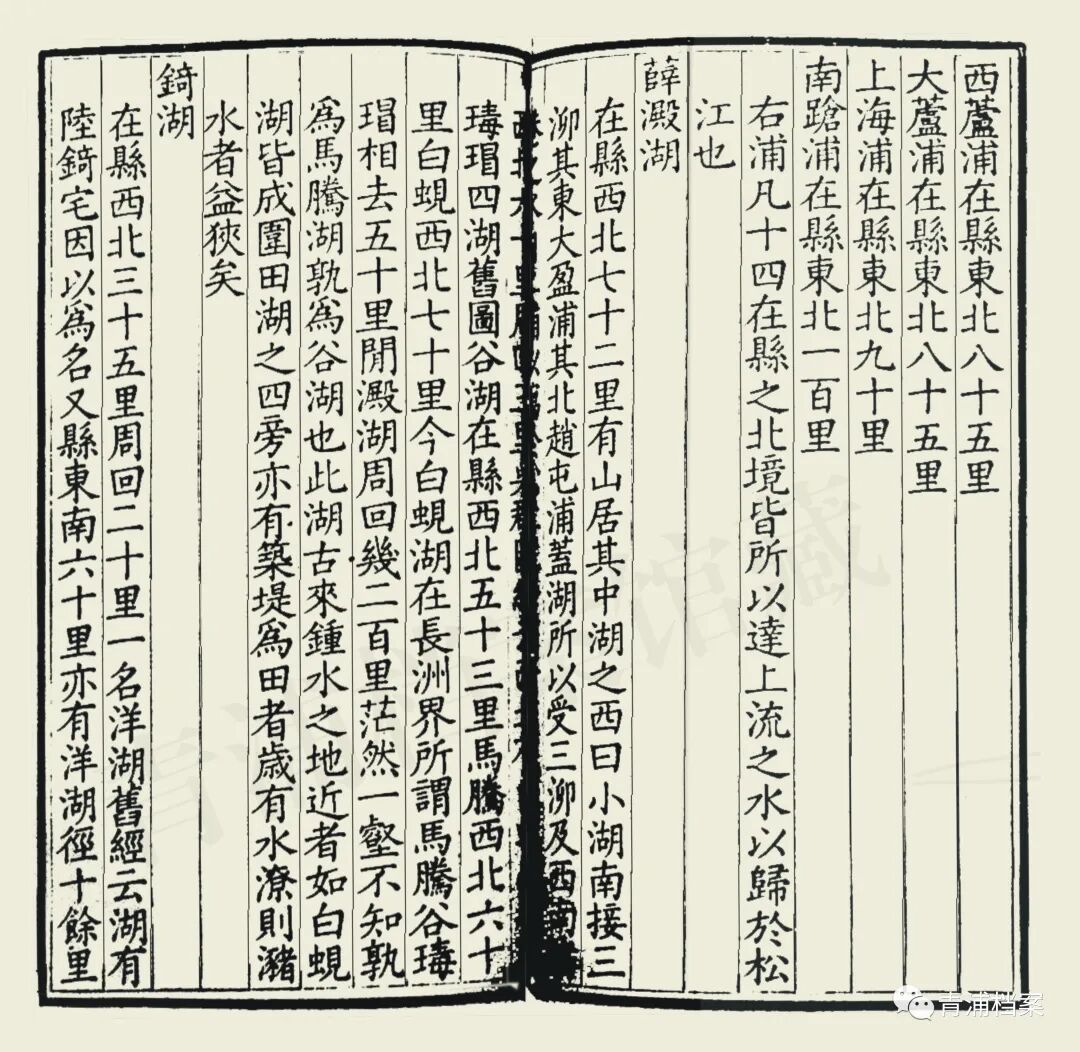 西蘆浦在縣東北八十五里
大蘆浦在縣東北八十五里
上海浦在縣東北九十里
南蹌浦在縣東北一百里
右浦凡十四在縣之北境皆所以達上流之水以歸於松
江也
薛澱湖
在縣西北七十二里有山居其中湖之西曰小湖南接三
泖其東大盈浦其北趙屯浦蓋湖所以受三泖及西南
里
瑇瑁四湖舊圖谷湖在縣西北五十三里馬騰西北六十
里白蜆西北七十里今白蜆湖在長洲界所謂馬騰谷瑇
瑁相去五十里閒澱湖周回幾二百里茫然一壑不知孰
爲馬騰湖孰爲谷湖也此湖古來鍾水之地近者如白蜆
湖皆成圍田湖之四旁亦有築堤爲田者歲有水潦則瀦
水者益狹矣
錡湖
在縣西北三十五里周回二十里一名洋湖舊經云湖有
陸錡宅因以爲名又縣東南六十里亦有洋湖徑十餘里
青浦档案